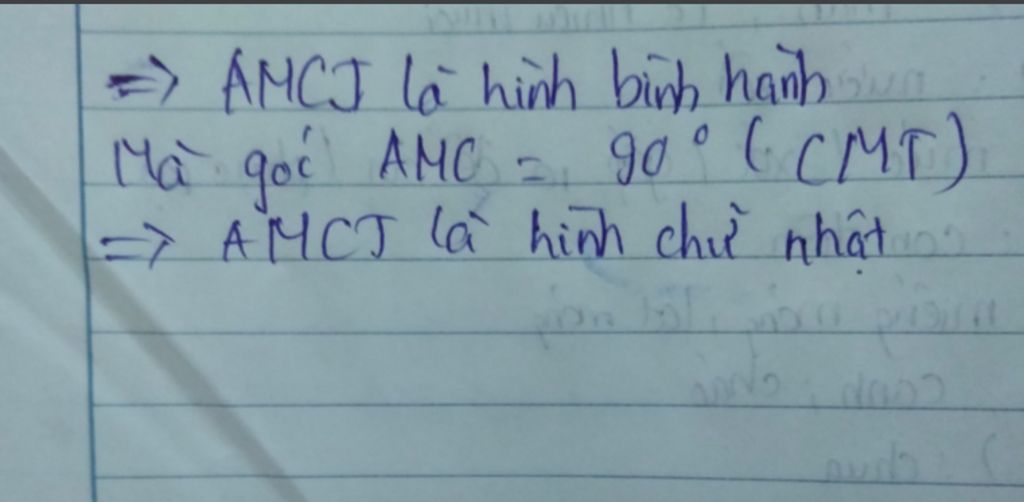 => AMCJ là hình bình hành
Mà góc AMC = 90° (CMT)
=> AMCJ là hình chữ nhật